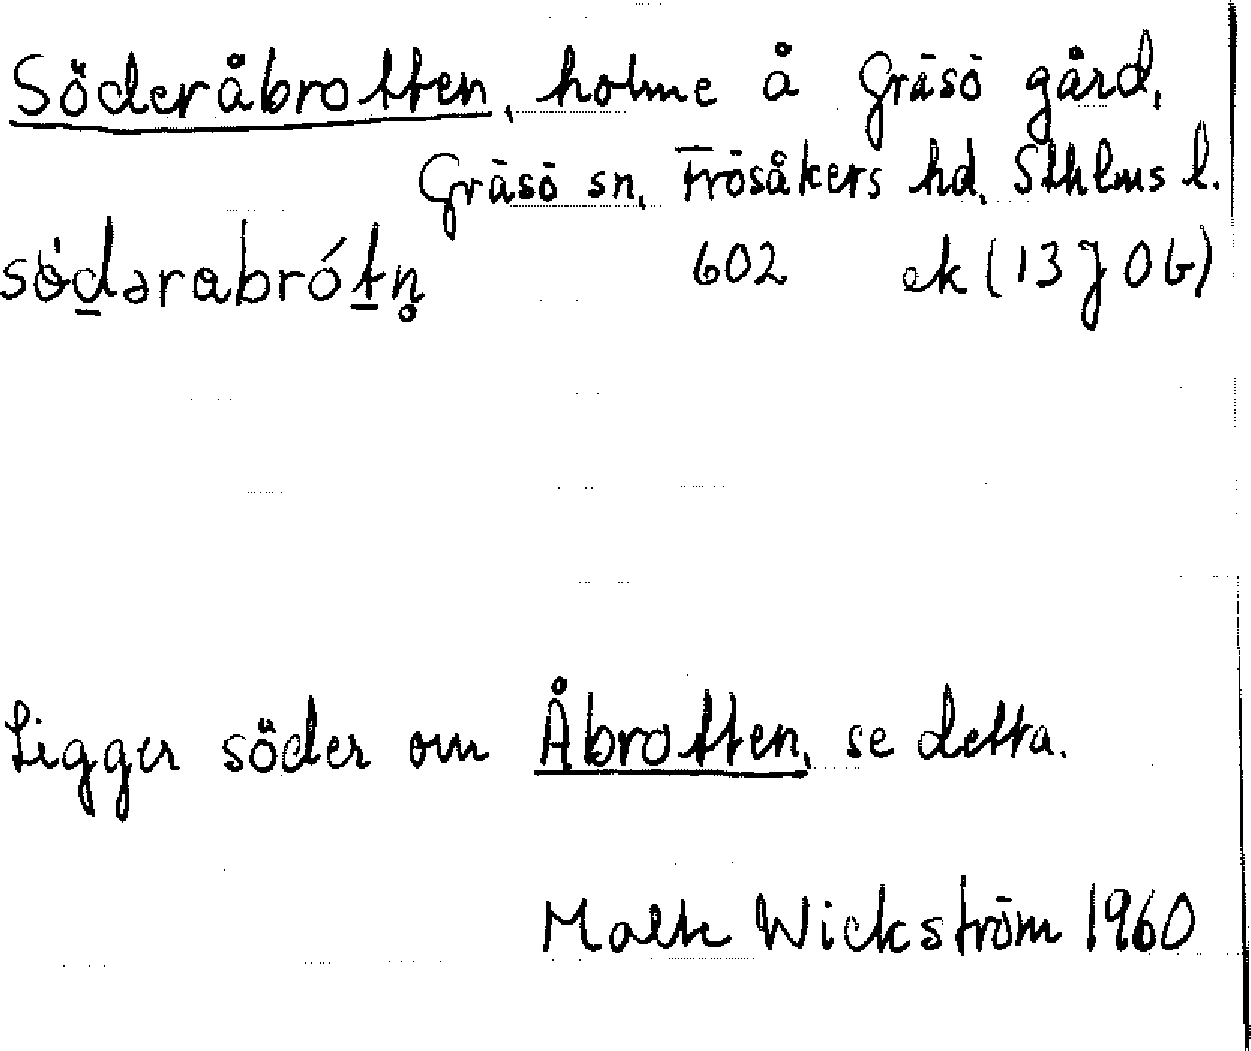 Söderåbrotten, holme å Gräsö gård,
Gräsö sn, Frösåkers hd, Sthlms l.
602 ek (13 J 0b)
Ligger söder om Åbrotten, se detta.
Malte Wickström 1960